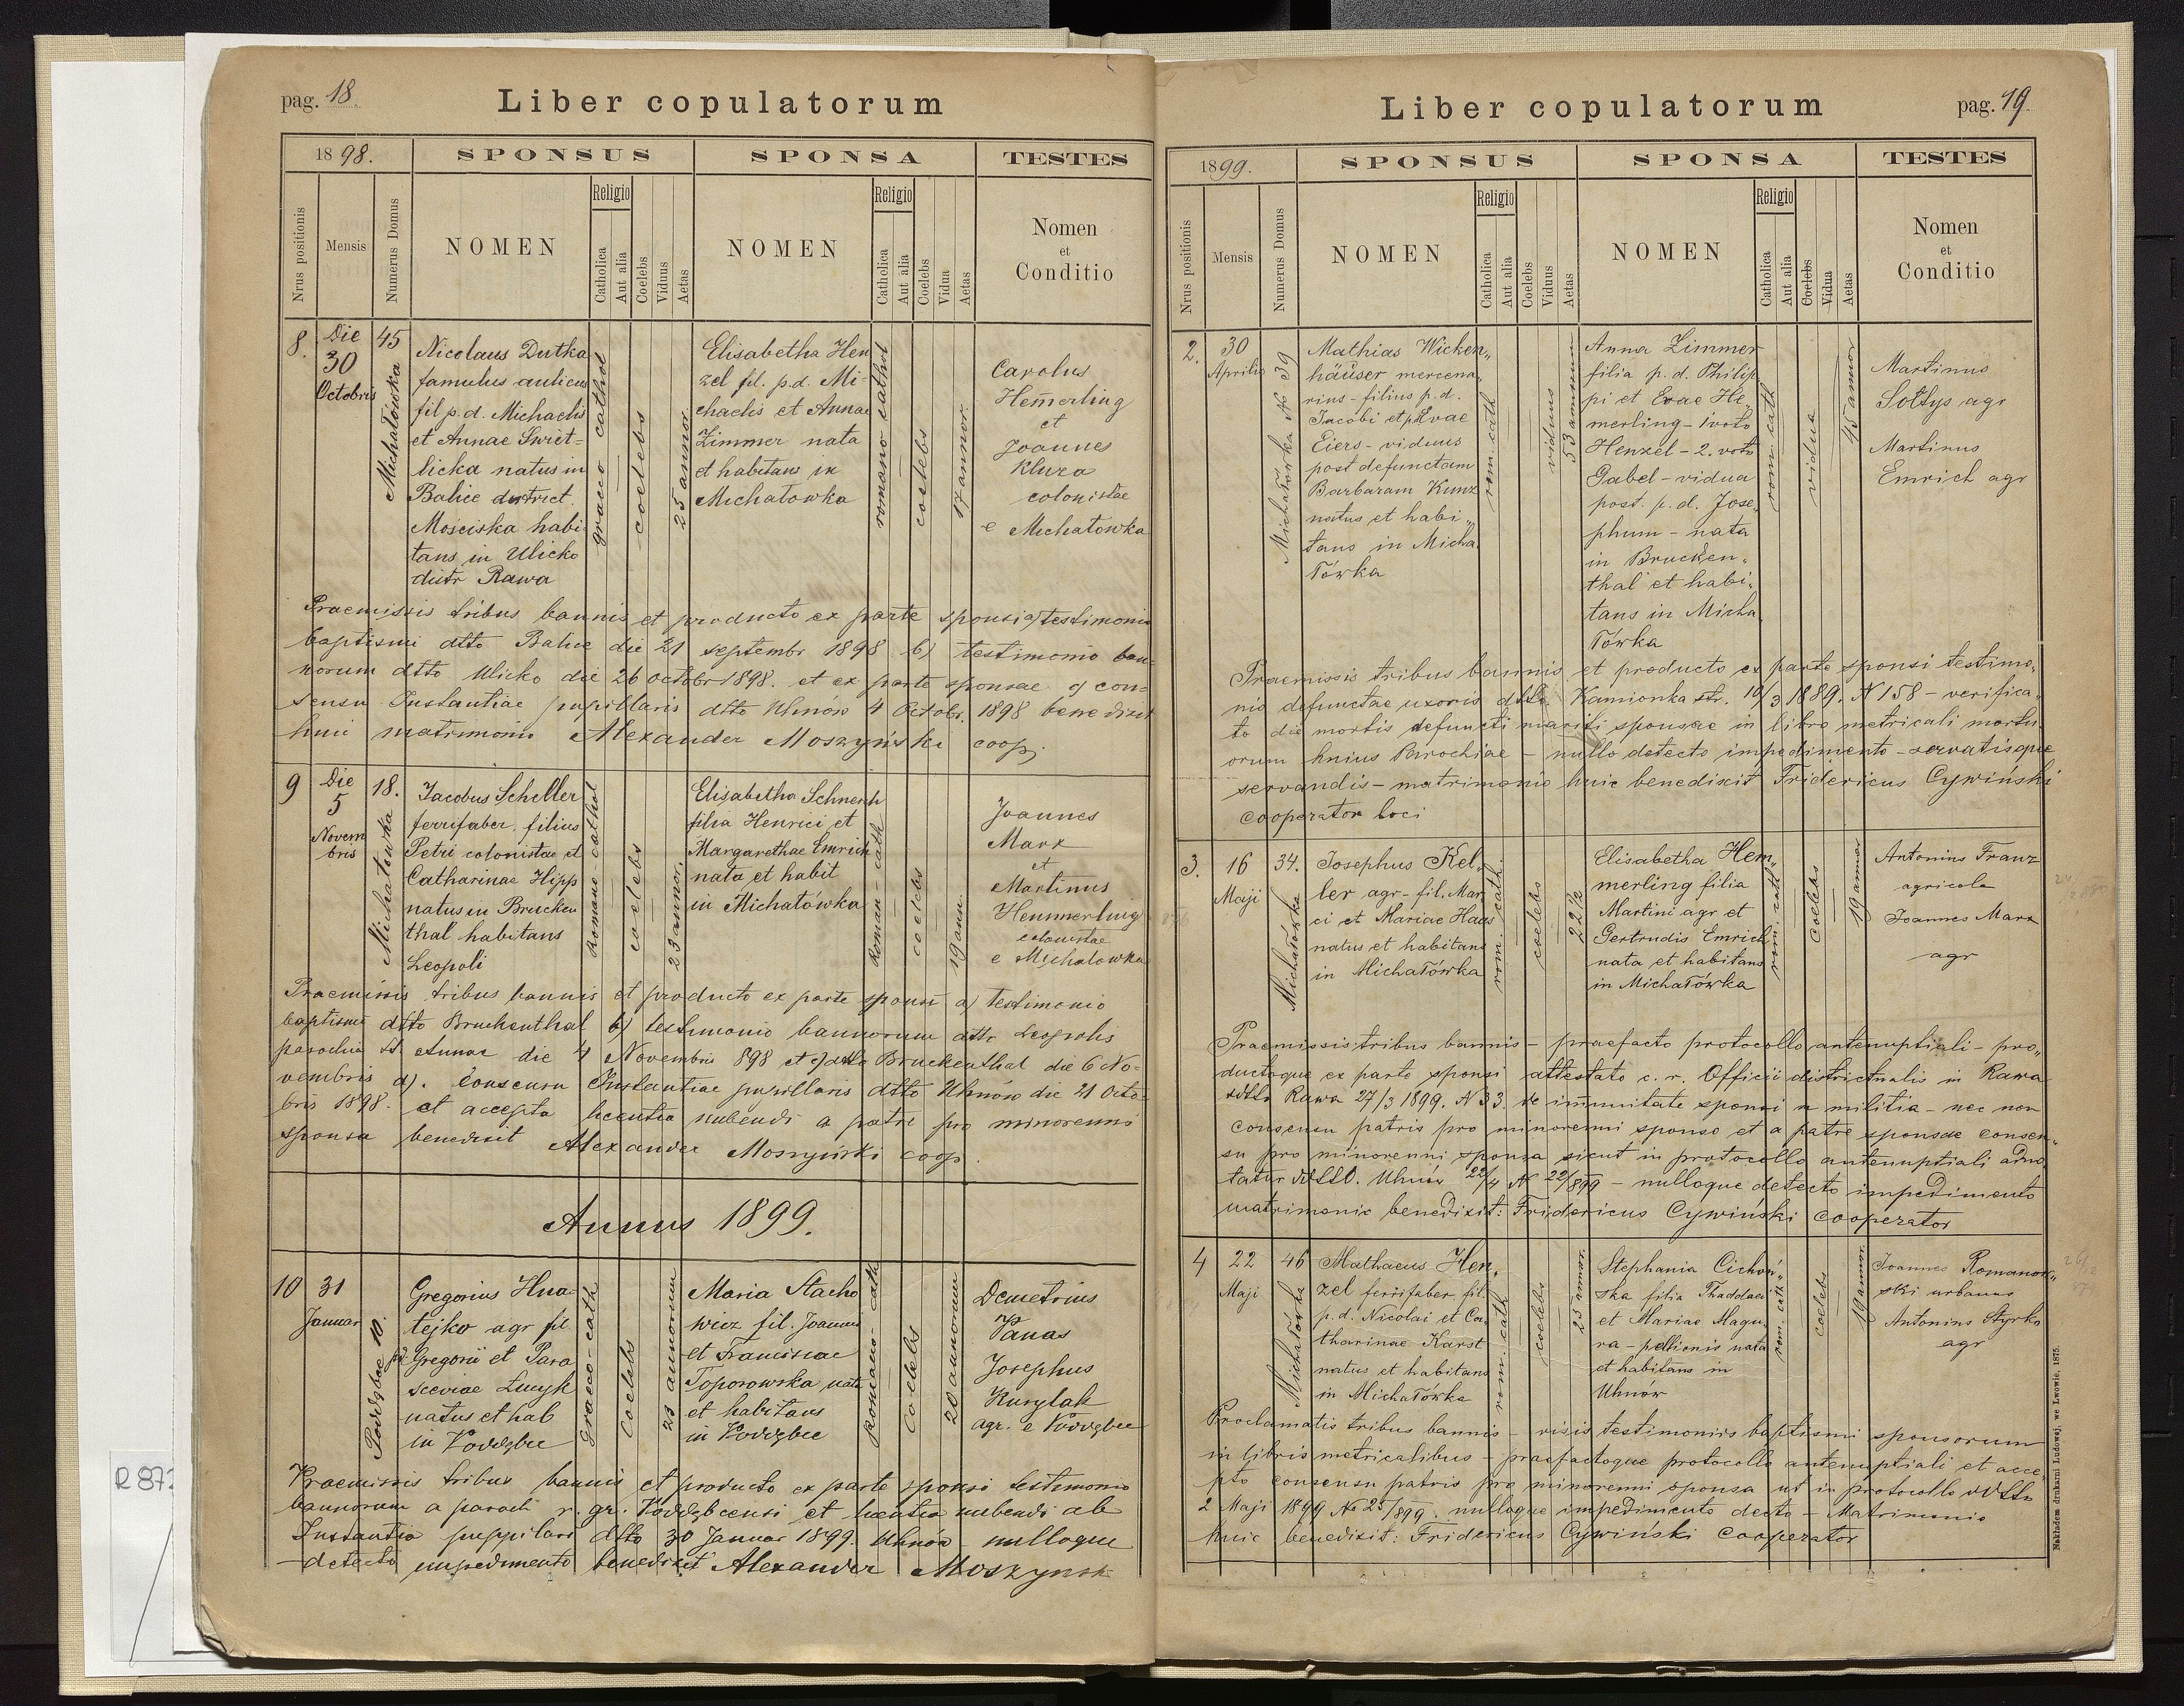 pag. 18
Liber copulatorum
1898.
SPONSUS
SPONSA
TESTES
Nrus positionis
Mensis
Numerus Domus
NOMEN
Religio
Catholica
Aut alia
Coelebs
Viduus
Aetas
NOMEN
Religio
Catholica
Aut alia
Coelebs
Vidua
Aetas
Nomen
et
Conditio
8.
Die
30
Octobris
45
Michałowka
Nicolaus Dutka
famulus aulicus
fil p. d. Michaelis
et Annae Swiet=
licka natus in
Balice district
Mosciska habi
tans in Ulicko
distr Rawa
graeco cathol
coelebs
25 annor.
Elisabetha Hen
zel fil. p. d. Mi=
chaelis et Annae
Zimmer nata
et habitans in
Michałowka
romano cathol
coelebs
17 annor.
Carolus
Hemerling
et
Joannes
Kluza
colonistae
e Michałowka
Praemissis tribus bannis et producto ex parte sponsi a) testimonio
baptismi dtto Balice die 21 septembr 1898 b) testimonio ban=
norum dtto Ulicko die 26 octobr 1898. et ex parte sponsae c) con=
sensu Instantiae pupillaris dtto Uhnów 4 Octobr. 1898 benedixit
huic matrimonio Alexander Moszyński coop.
9
Die
5
Novem
bris
18.
Michałowka
Jacobus Scheller
ferrifaber, filius
Petri colonistae et
Catharinae Hipp
natus in Brucken
thal habitans
Leopoli
Romano cathol
coelebs
23 annor.
Elisabetha Schnerch
filia Henrici et
Margarethae Emrich
nata et habit
in Michałówka
Roman-cath
coelebs
19 ann.
Joannes
Marx
et
Martinus
Hemmerling
colonistae
e Michałowka
Praemissis tribus bannis et producto ex parte sponsi a) testimonio
baptismi dtto Bruckenthal b) testimonio bannorum dtto Leopolis
parochia St Annae die 4 Novembris 898 et c) dtto Bruckenthal die 6 No=
vembris d). Consensu Instantiae pupillaris dtto Uhnów die 21 Octo=
bris 1898. et accepta licentia nubendi a patre pro minorenni
sponsa benedixit Alexander Moszyński coop.
Annus 1899.
10
31
Januar
Poddębce 10.
Gregorius Hna
tejko agr fil
pd. Gregorii et Para
sceviae Lucyk
natus et hab
in Poddębce
Graeco-cath
Coelebs
23 annorum
Maria Stacho
wicz fil. Joannis
et Franciscae
Toporowska nata
et habitans
in Poddębce
Romano-cath
Coelebs
20 annorum
Demetrius
Panas
Josephus
Kurylak
agr. e Poddębce
Praemissis tribus bannis et producto ex parte sponsi testimonio
bannorum a paroch r. gr. Poddębcensi et licentia nubendi ab
Instantia puppilari dtto 30 Januar 1899. Uhnów nulloque
detecto impedimento benedixit Alexander Moszynsk
pag. 19.
Liber copulatorum
1899.
SPONSUS
SPONSA
TESTES
Nrus positionis
Mensis
Numerus Domus
NOMEN
Religio
Catholica
Aut alia
Coelebs
Viduus
Aetas
NOMEN
Religio
Catholica
Aut alia
Coelebs
Vidua
Aetas
Nomen
et
Conditio
2.
30
Aprilis
Michałówka No 39
Mathias Wicken„
häuser mercena„
rius - filius p. d.
Jacobi et pd Evae
Eiers - viduus
post defunctam
Barbaram Kunz
natus et habi„
tans in Micha„
łówka
rom. cath
viduus
53 annorum
Anna Zimmer
filia p. d. Philip„
pi et Evae He„
merling - 1 voto
Henzel - 2. voto
Gabel - vidua
post. p. d. Jose„
phum - nata
in Brucken„
thal et habi„
tans in Micha„
łówka
rom. cath
vidua
45 annor
Martinus
Sołtys agr
Martinus
Emrich agr
Praemissis tribus bannis et producto ex parte sponsi testimo„
nio defunctae uxoris dtto Kamionka str. 10/3 1889. N 158 - verifica„
to die mortis defuncti mariti sponsae in libro metricali mortu„
orum hujus Parochiae - nullo detecto impedimento - servatisque
servandis - matrimonio huic benedixit Fridericus Cywiński
cooperator loci
3.
16
Maji
34.
Michałówka
Josephus Kel„
ler agr - fil. Mar
ci et Mariae Haas
natus et habitans
in Michałówka
rom. cath.
coelebs
22 1/2
Elisabetha Hem„
merling filia
Martini agr et
Gertrudis Emrich
nata et habitans
in Michałówka
rom. cath
coelebs
19 annor
Antonius Franz
agricola
Joannes Marx
agr
Praemissis tribus bannis - praefacto protocollo antenuptiali - pro„
ductoque ex parte sponsi attestato c. r. Officii districtualis in Rawa
ddtto Rawa 27/3 1899. N 33. de immunitate sponsi a militia - nec non
consensu patris pro minorenni sponso et a patre sponsae consen„
su pro minorenni sponsa sicut in protocollo antenuptiali adno„
tatur ddtto. Uhnów 22/4 N 22/899 - nulloque detecto impedimento
matrimonio benedixit: Fridericus Cywiński cooperator
4
22
Maji
46
Michałówka
Mathaeus Hen„
zel ferrifaber fil.
p. d. Nicolai et Ca„
tharinae Karst
natus et habitans
in Michałówka
rom. cath
coelebs
25 annor.
Stephania Cichoń„
ska filia Thaddaei
et Mariae Magu„
ra - pellionis nata
et habitans in
Uhnów
rom. cath
coelebs
19 annor.
Joannes Romanow„
ski urbanus
Antonius Styrko
agr
Proclamatis tribus bannis - visis testimoniis baptismi sponsorum
in libris metricalibus - praefactoque protocollo antenuptiali et acce„
pto consensu patris pro minorenni sponsa ut in protocollo ddtto
2 Maji 1899 No 25/899. nulloque impedimento decto - Matrimonio
huic benedixit: Fridericus Cywiński cooperator
Nakładem drukarni Ludowej, we Lwowie, 1875.
R 87